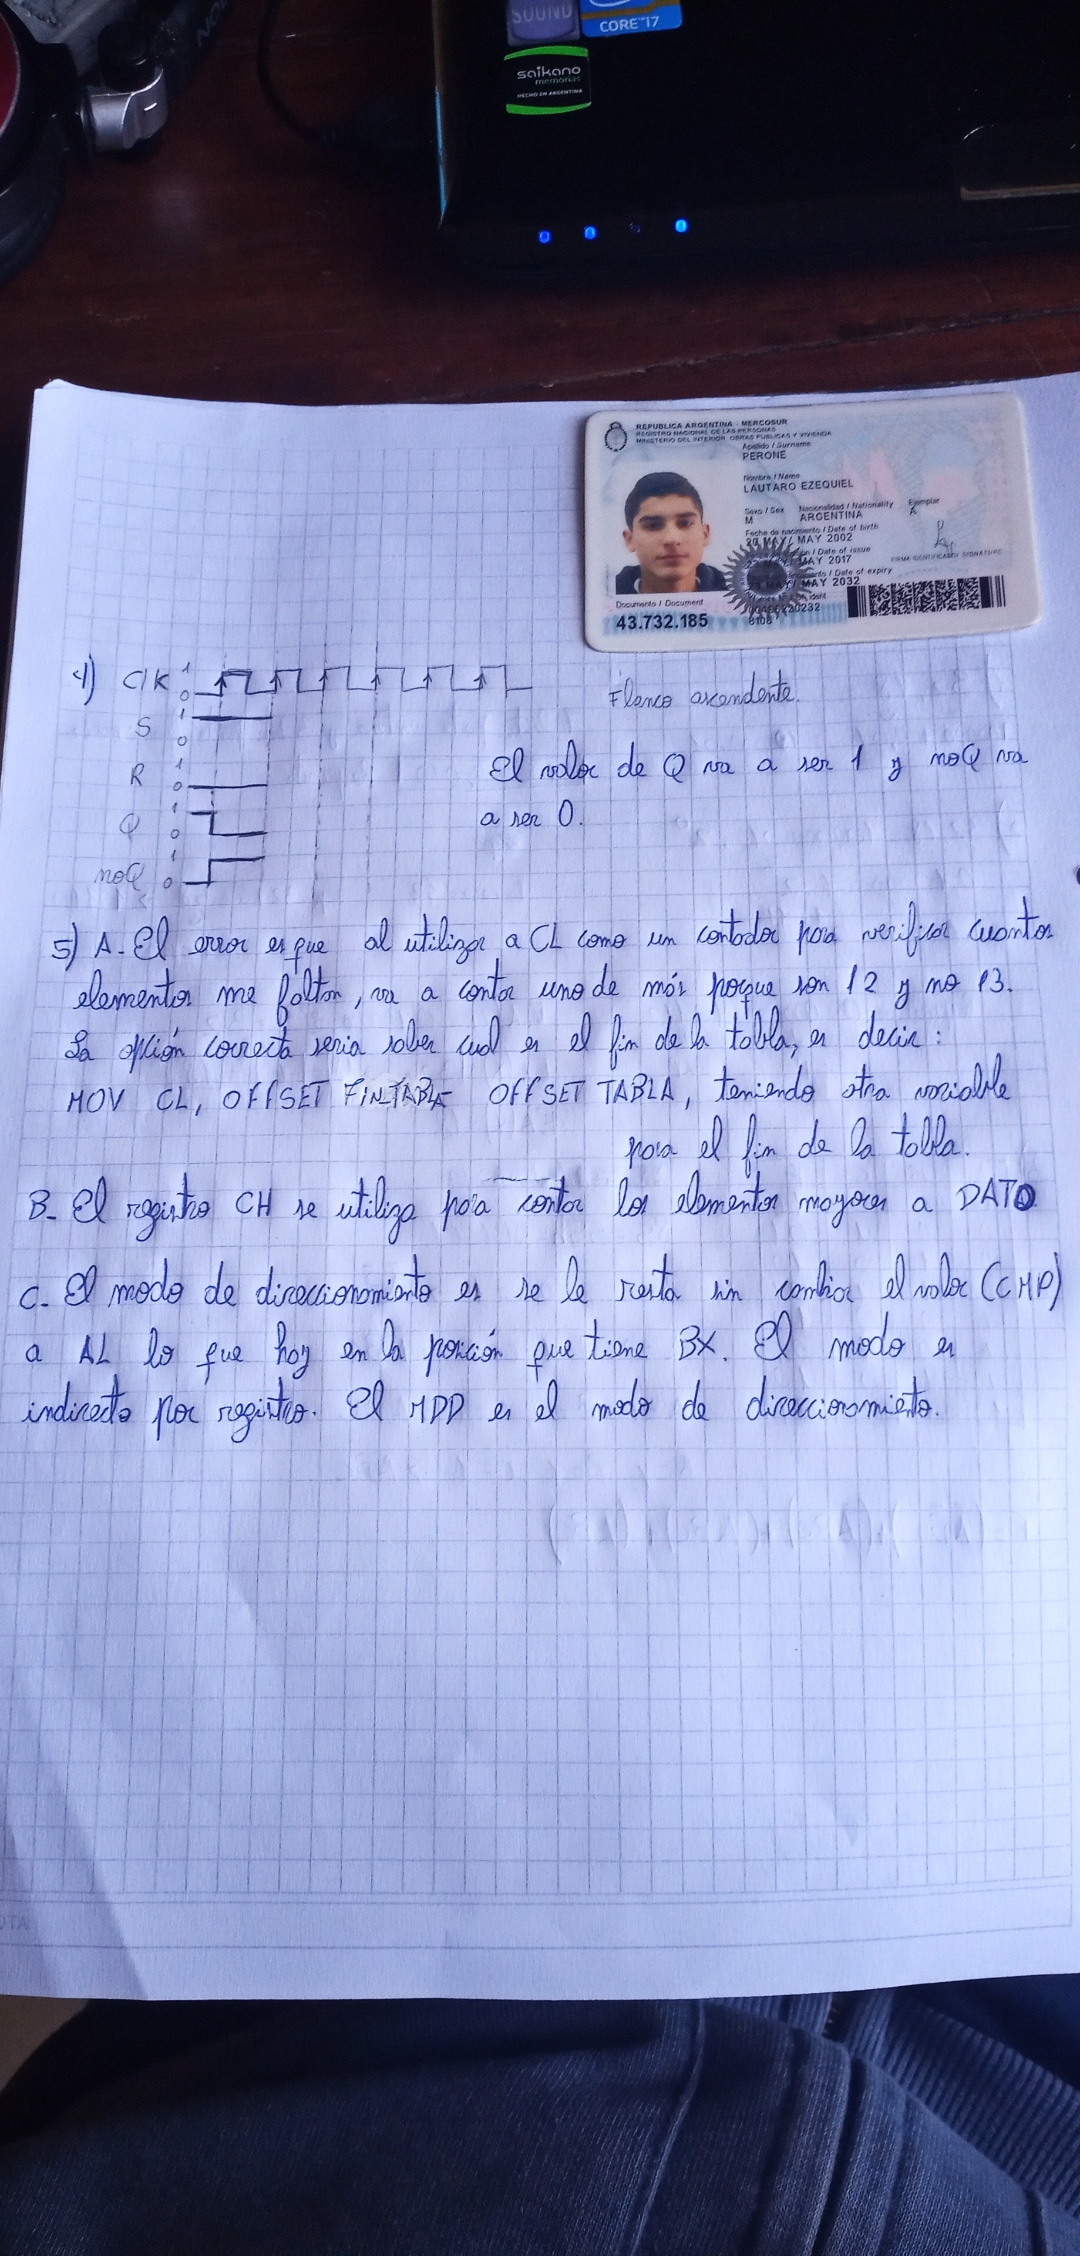 SOUND
CORE i7
saikano
memorias
HECHO EN ARGENTINA
REPUBLICA ARGENTINA - MERCOSUR
REGISTRO NACIONAL DE LAS PERSONAS
MINISTERIO DEL INTERIOR, OBRAS PUBLICAS Y VIVIENDA
Apellido / Surname
PERONE
Nombre / Name
LAUTARO EZEQUIEL
Sexo / Sex Nacionalidad / Nationality Ejemplar
M ARGENTINA A
Fecha de nacimiento / Date of birth
MAY / MAY 2002
/ Date of issue
MAY 2017
FIRMA IDENTIFICADO / SIGNATURE
/ Date of expiry
MAY / MAY 2032
Documento / Document
43.732.185
8108
4) ClK 1 0 Flanco ascendente.
S 1 0
R 1 0 El valor de Q va a ser 1 y noQ va
Q 1 0 a ser 0.
noQ 1 0
5) A- El error es que al utilizar a CL como un contador para verificar cuantos
elementos me faltan, va a contar uno de más porque son 12 y no 13.
La opción correcta seria saber cual es el fin de la tabla, es decir:
MOV CL, OFFSET FINTABLA - OFFSET TABLA, teniendo otra variable
para el fin de la tabla.
B- El registro CH se utiliza para contar los elementos mayores a DATO
C- El modo de direccionamiento es se le resta sin cambiar el valor (CMP)
a AL lo que hay en la posición que tiene BX. El modo es
indirecto por registro. El MDD es el modo de direccionamiento.